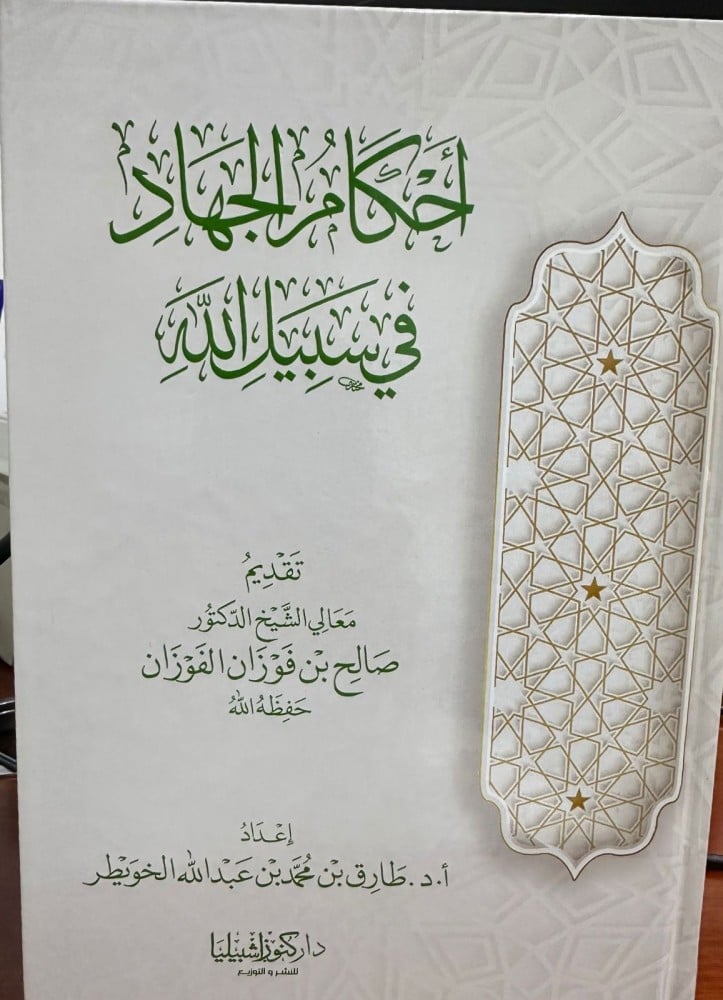 أَحْكَامُ الجِهَادِ
فِي سَبِيلِ اللَّهِ
تَقْدِيمُ
مَعَالِي الشَّيْخِ الدّكتُور
صَالِح بْن فَوْزَان الفَوْزَان
حَفِظَهُ اللَّهُ
إعْدَادُ
أ.د. طَارِق بْن مُحَمَّد بْن عَبْد اللَّه الخوَيْطر
دار كنوز إشبيليا
للنشر و التوزيع